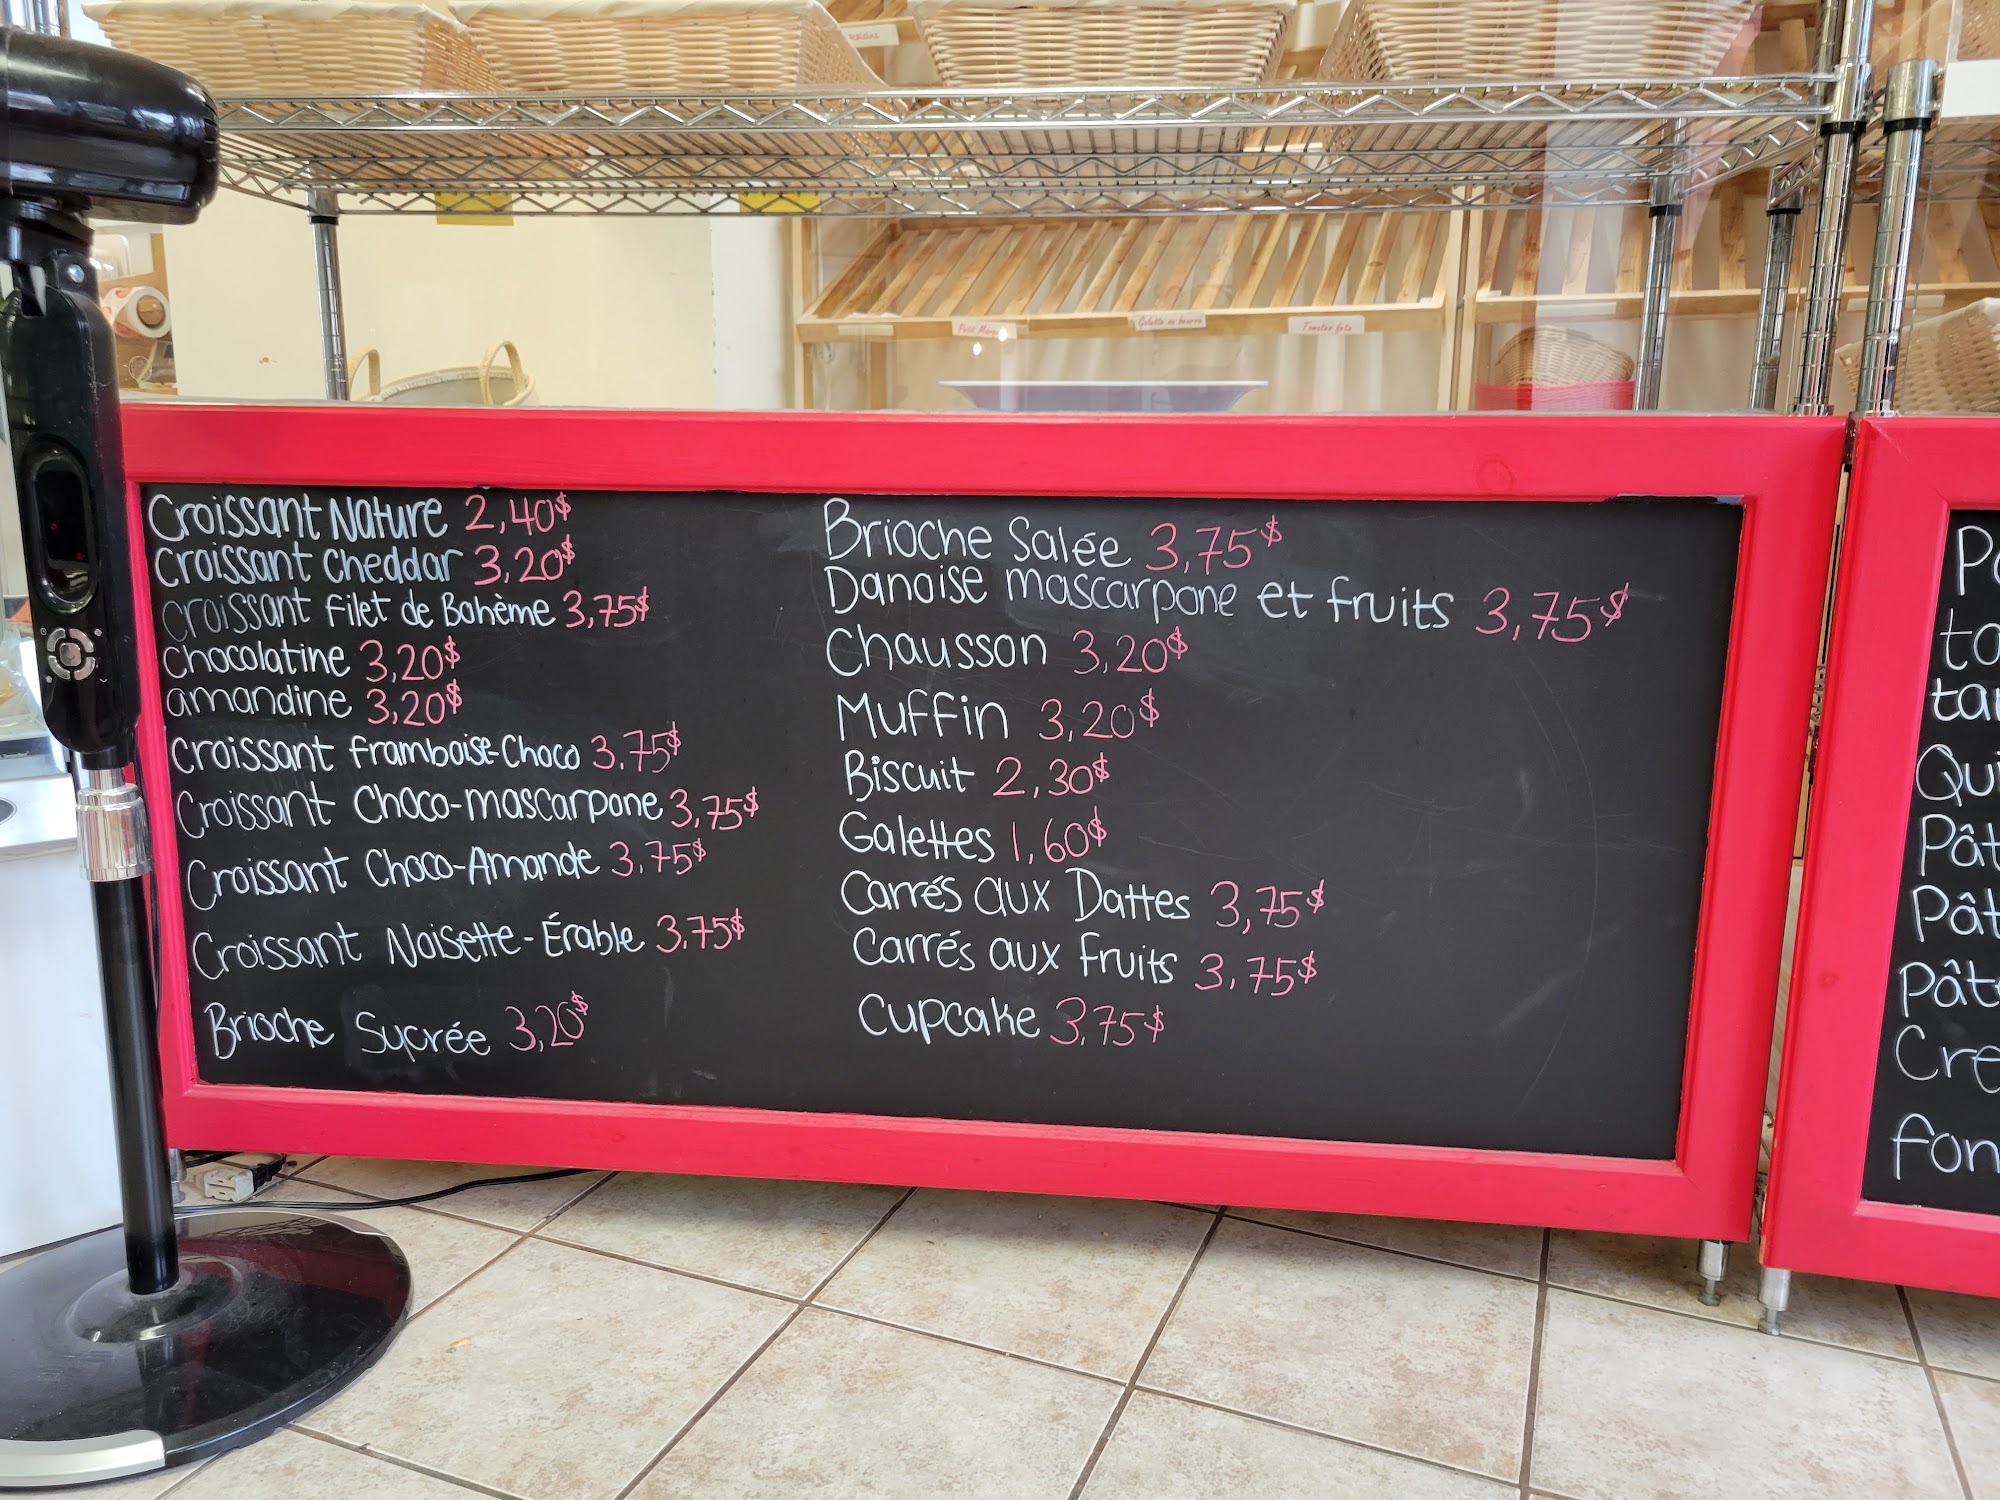 Raisins
Petit Marg
Galette au beurre
Tomates feta
Croissant Nature 2,40$
Croissant Cheddar 3,20$
Croissant Filet de Bohème 3,75$
Chocolatine 3,20$
amandine 3,20$
Croissant Framboise-Choco 3,75$
Croissant Choco-mascarpone 3,75$
Croissant Choco-Amande 3,75$
Croissant Noisette-Érable 3,75$
Brioche Sucrée 3,20$
Brioche Salée 3,75$
Danoise mascarpone et fruits 3,75$
Chausson 3,20$
Muffin 3,20$
Biscuit 2,30$
Galettes 1,60$
Carrés aux Dattes 3,75$
Carrés aux fruits 3,75$
Cupcake 3,75$
Pa
to
tar
Qui
Pât
Pât
Pât
Cre
fon